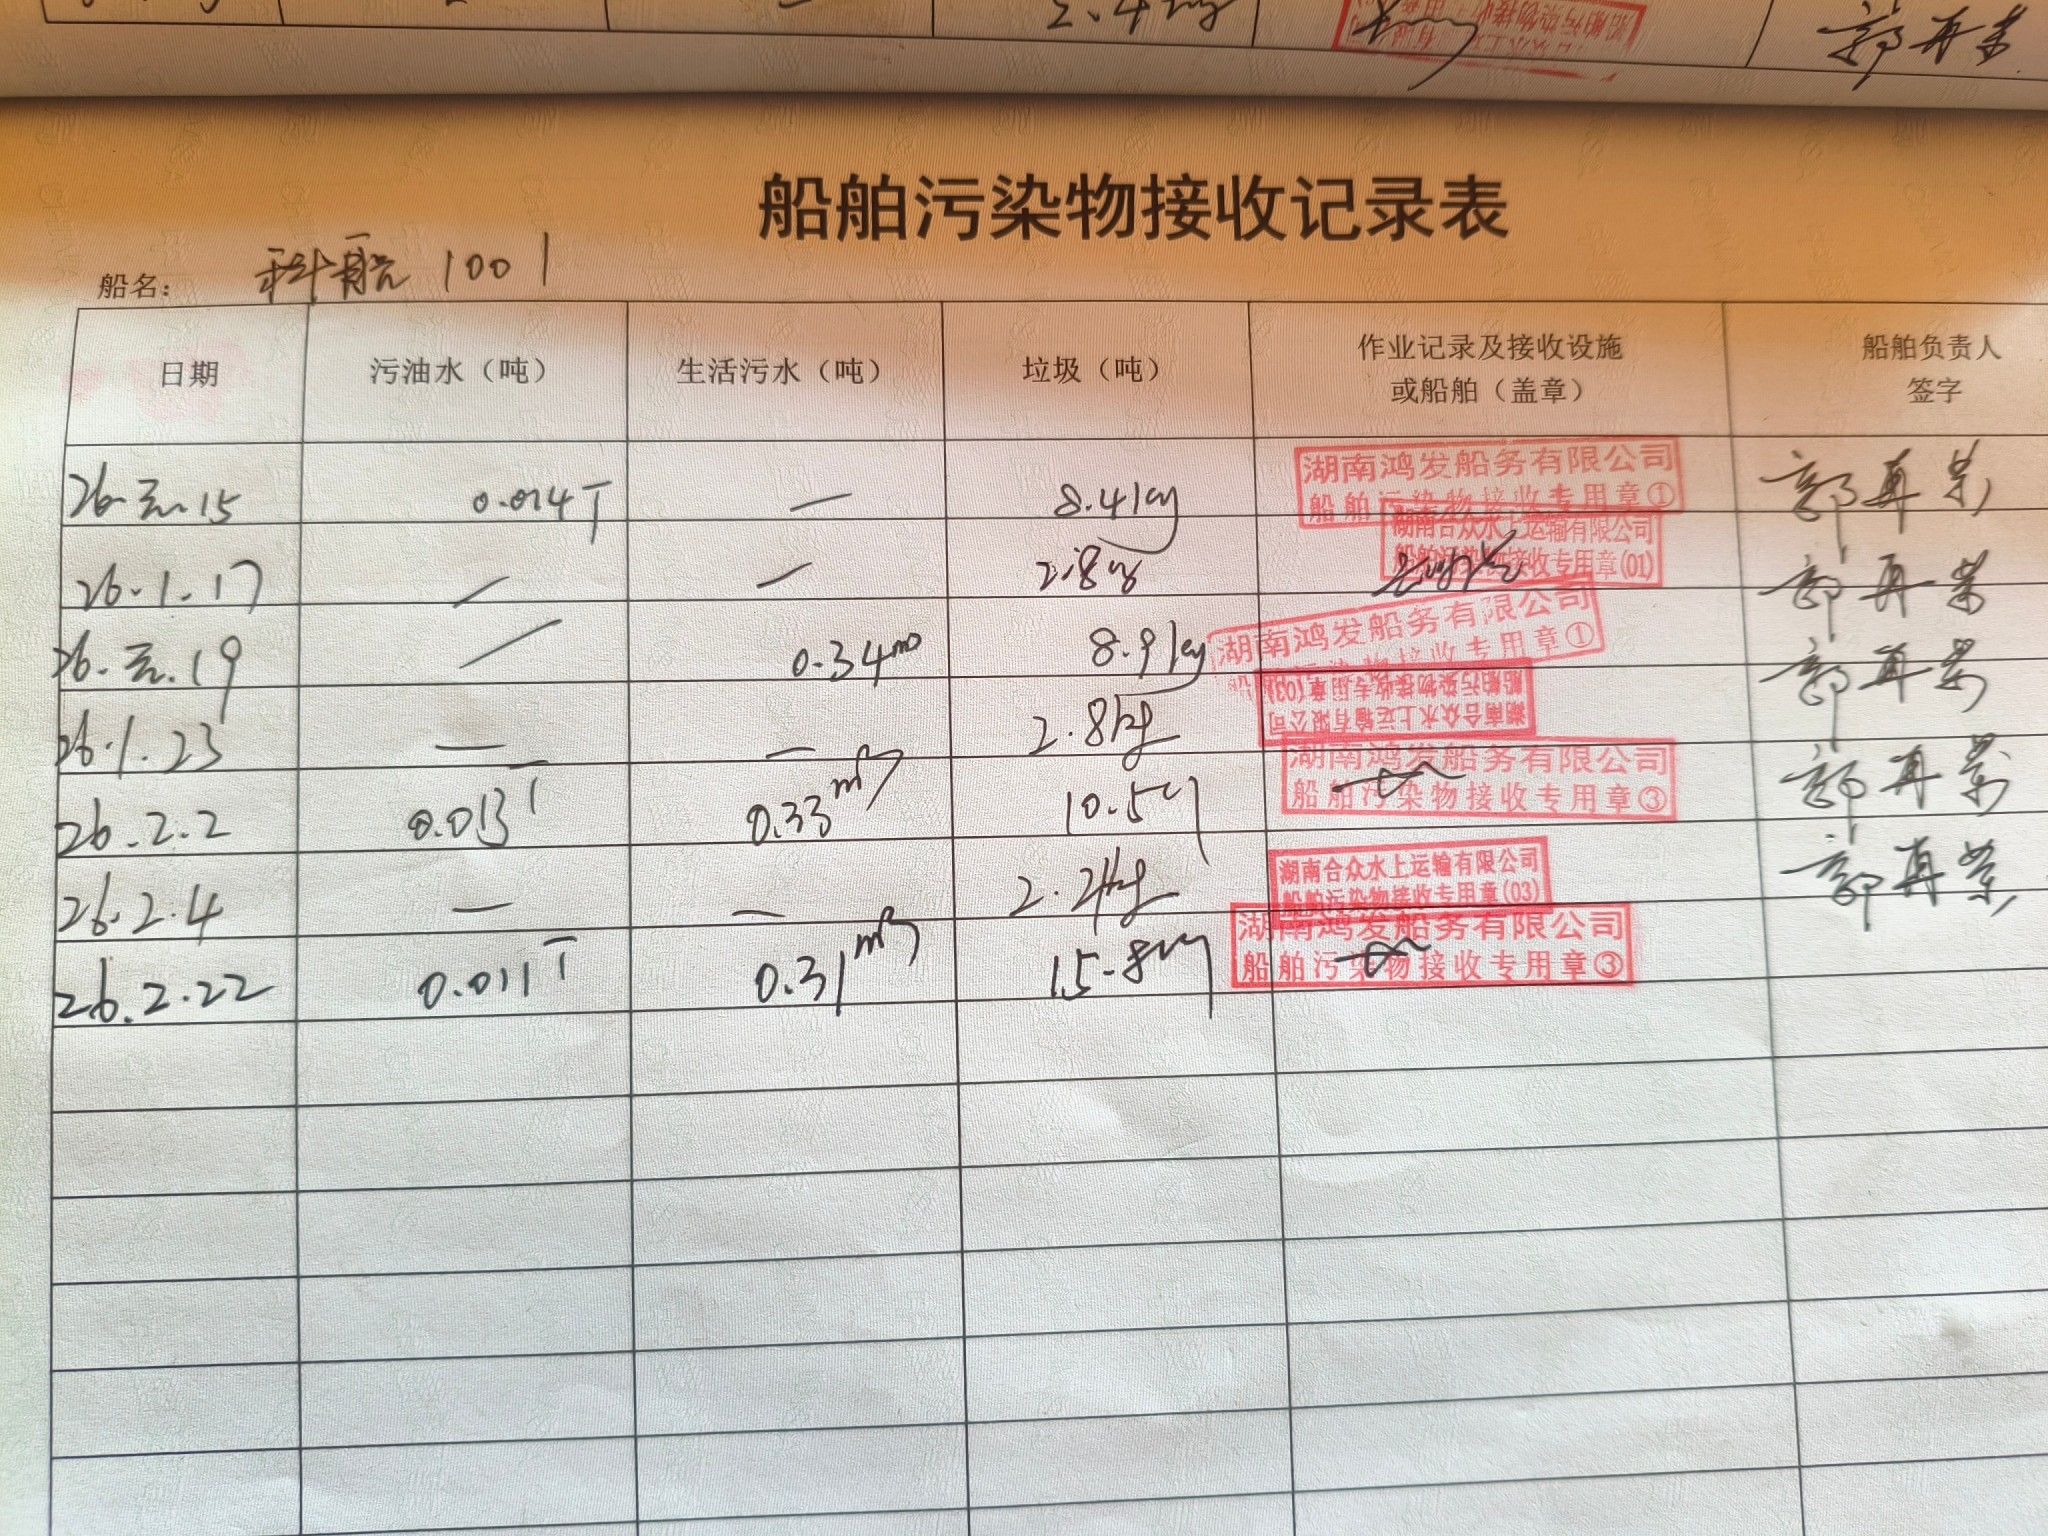 2.4kg 郭再荣
船舶污染物接收记录表
船名: 科航1001
日期 污油水（吨） 生活污水（吨） 垃圾（吨） 作业记录及接收设施或船舶（盖章） 船舶负责人签字
26.元.15 0.014T — 8.4kg 湖南鸿发船务有限公司 船舶污染物接收专用章① 郭再荣
26.1.17 — — 2.8kg 湖南合众水上运输有限公司 船舶污染物接收专用章(01) 郭再荣
26.元.19 — 0.34m³ 8.9kg 湖南鸿发船务有限公司 船舶污染物接收专用章① 郭再荣
26.1.23 — — 2.8kg 湖南合众水上运输有限公司 船舶污染物接收专用章(03) 郭再荣
26.2.2 0.013T 0.33m³ 10.5kg 湖南鸿发船务有限公司 船舶污染物接收专用章③ 郭再荣
26.2.4 — — 2.2kg 湖南合众水上运输有限公司 船舶污染物接收专用章(03)
26.2.22 0.011T 0.31m³ 15.8kg 湖南鸿发船务有限公司 船舶污染物接收专用章③